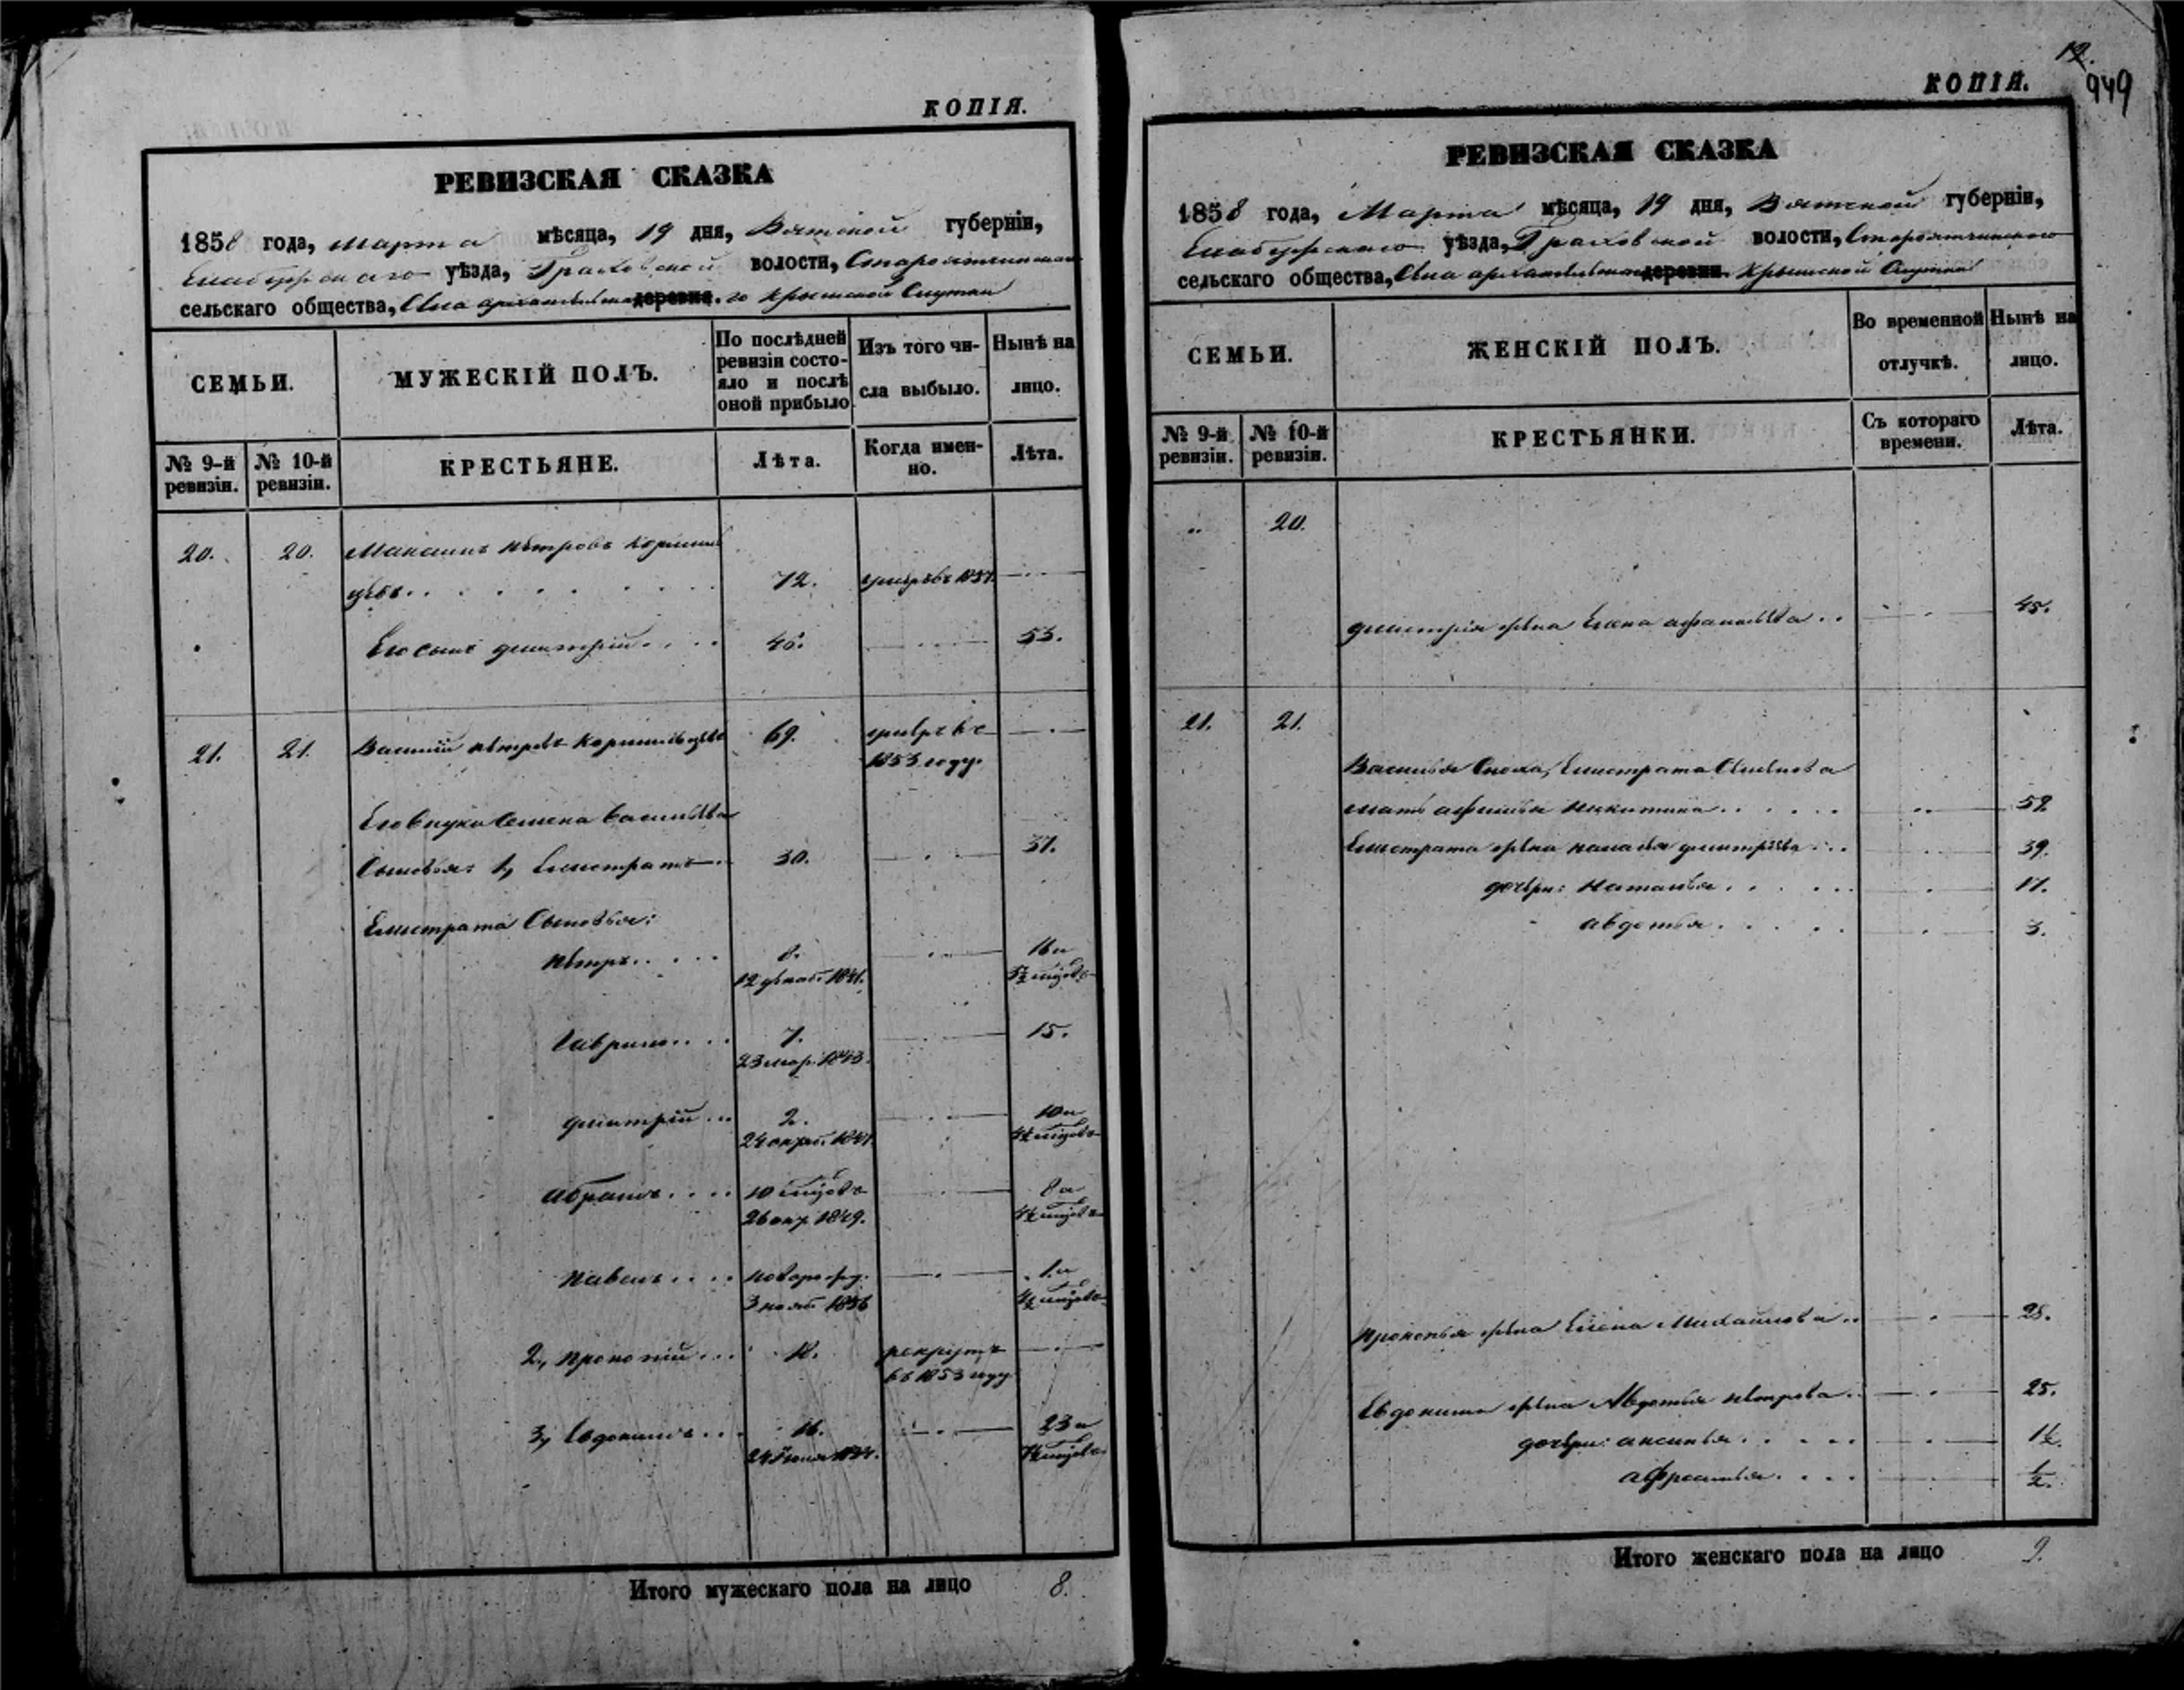 КОПІЯ.
РЕВИЗСКАЯ СКАЗКА
1858 года, марта мѣсяца, 19 дня, Вятской губерніи,
Елабужскаго уѣзда, Граховской волости,
сельскаго общества, Села деревни.
СЕМЬИ.
МУЖЕСКІЙ ПОЛЪ.
По послѣдней ревизіи состо-
яло и послѣ
оной прибыло
Изъ того чи-
сла выбыло.
Нынѣ на
лицо.
№ 9-й ревизіи.
№ 10-й ревизіи.
КРЕСТЬЯНЕ.
Лѣта.
Когда имен-
но.
Лѣта.
20. 20. Максимъ Петровъ
72. умеръ въ 1857.
Его сынъ Дмитрій 46. 53.
21. 21. Василій Петровъ 69. умеръ въ
1853 году.
Его внуки Семена Васильева
Сыновья: 1, Емистратъ 30. 37.
Емистрата Сыновья:
Петръ 8. 16 и
12 декаб 1841. 3½ мѣсяцовъ
Гаврило 7. 15.
23 мар. 1843.
Дмитрій 2. 10 и
24 1847. 4½ мѣсяцовъ
Абрамъ 10 мѣсяцовъ 8 и
26 окт. 1849. 4½ мѣсяцовъ
Павелъ новорожд. 1 и
3 нояб 1856 4½ мѣсяцовъ
2, Прокопій 18. рекрутъ
въ 1853 году
3, Евдокимъ 16. 23 и
24 1834. мѣсяцовъ
Итого мужескаго пола на лицо 8.
12.
949
КОПІЯ.
РЕВИЗСКАЯ СКАЗКА
1858 года, Марта мѣсяца, 19 дня, Вятской губерніи,
Елабужскаго уѣзда, Граховской волости,
сельскаго общества, Села деревни.
СЕМЬИ.
ЖЕНСКІЙ ПОЛЪ.
Во временной
отлучкѣ.
Нынѣ на
лицо.
№ 9-й ревизіи.
№ 10-й ревизіи.
КРЕСТЬЯНКИ.
Съ котораго
времени.
Лѣта.
„ 20.
Дмитрія жена Елена 45.
21. 21.
Василья Сноха, Емистрата Семенова
мать Афимья Никитина 59.
Емистрата жена Дмитріева 39.
дочери: Наталья 17.
Авдотья 3.
Прокопья жена Елена Михайлова 28.
Евдокима жена Авдотья Петрова 25.
дочери: Аксинья 1½.
½.
Итого женскаго пола на лицо 9.